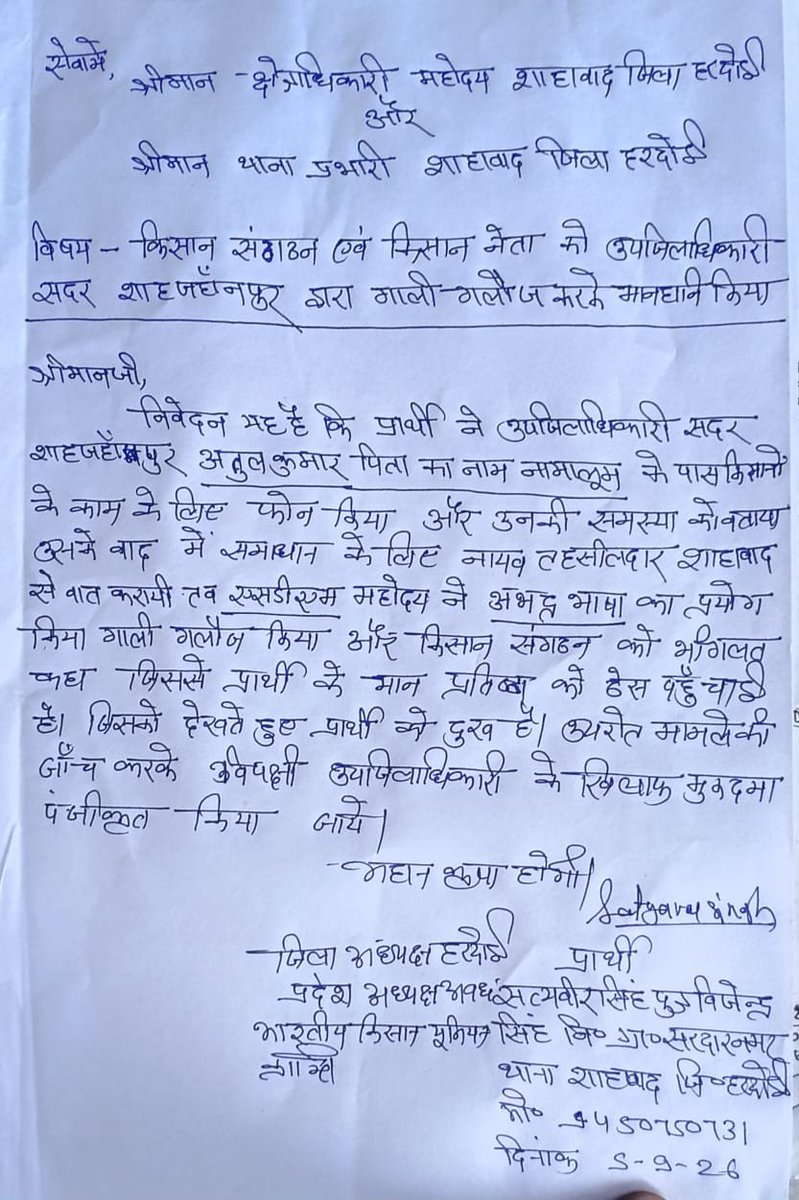 सेवामें,
श्रीमान क्षेत्राधिकारी महोदय शाहावाद जिला हरदोई
और
श्रीमान थाना प्रभारी शाहावाद जिला हरदोई
विषय - किसान संगठन एवं किसान नेता को उपजिलाधिकारी
सदर शाहजहाँनपुर द्वारा गाली-गलौज करके मानहानि किया
श्रीमानजी,
निवेदन यह है कि प्रार्थी ने उपजिलाधिकारी सदर
शाहजहाँपुर अतुल कुमार पिता का नाम नामालूम के पास किसानों
के काम के लिए फोन किया और उनकी समस्या को वताया
उसके वाद में समाधान के लिए नायव तहसीलदार शाहावाद
से वात करायी तव एसडीएम महोदय ने अभद्र भाषा का प्रयोग
किया गाली गलौज किया और किसान संगठन को
कहा जिससे प्रार्थी के मान को ठेस पहुँचाई
है। जिसको देखते हुए प्रार्थी को दुख है। मामले की
जाँच करके विपक्षी उपजिलाधिकारी के खिलाफ मुकदमा
पंजीकृत किया जाये।
महान कृपा होगी।
जिला अध्यक्ष हरदोई प्रार्थी
प्रदेश अध्यक्ष अवध सत्यवीर सिंह पुत्र विजेन्द्र
भारतीय किसान यूनियन सिंह नि० ग्रा० सरदारनगर
थाना शाहावाद जि० हरदोई
मो० 9450750731
दिनांक 5-9-26